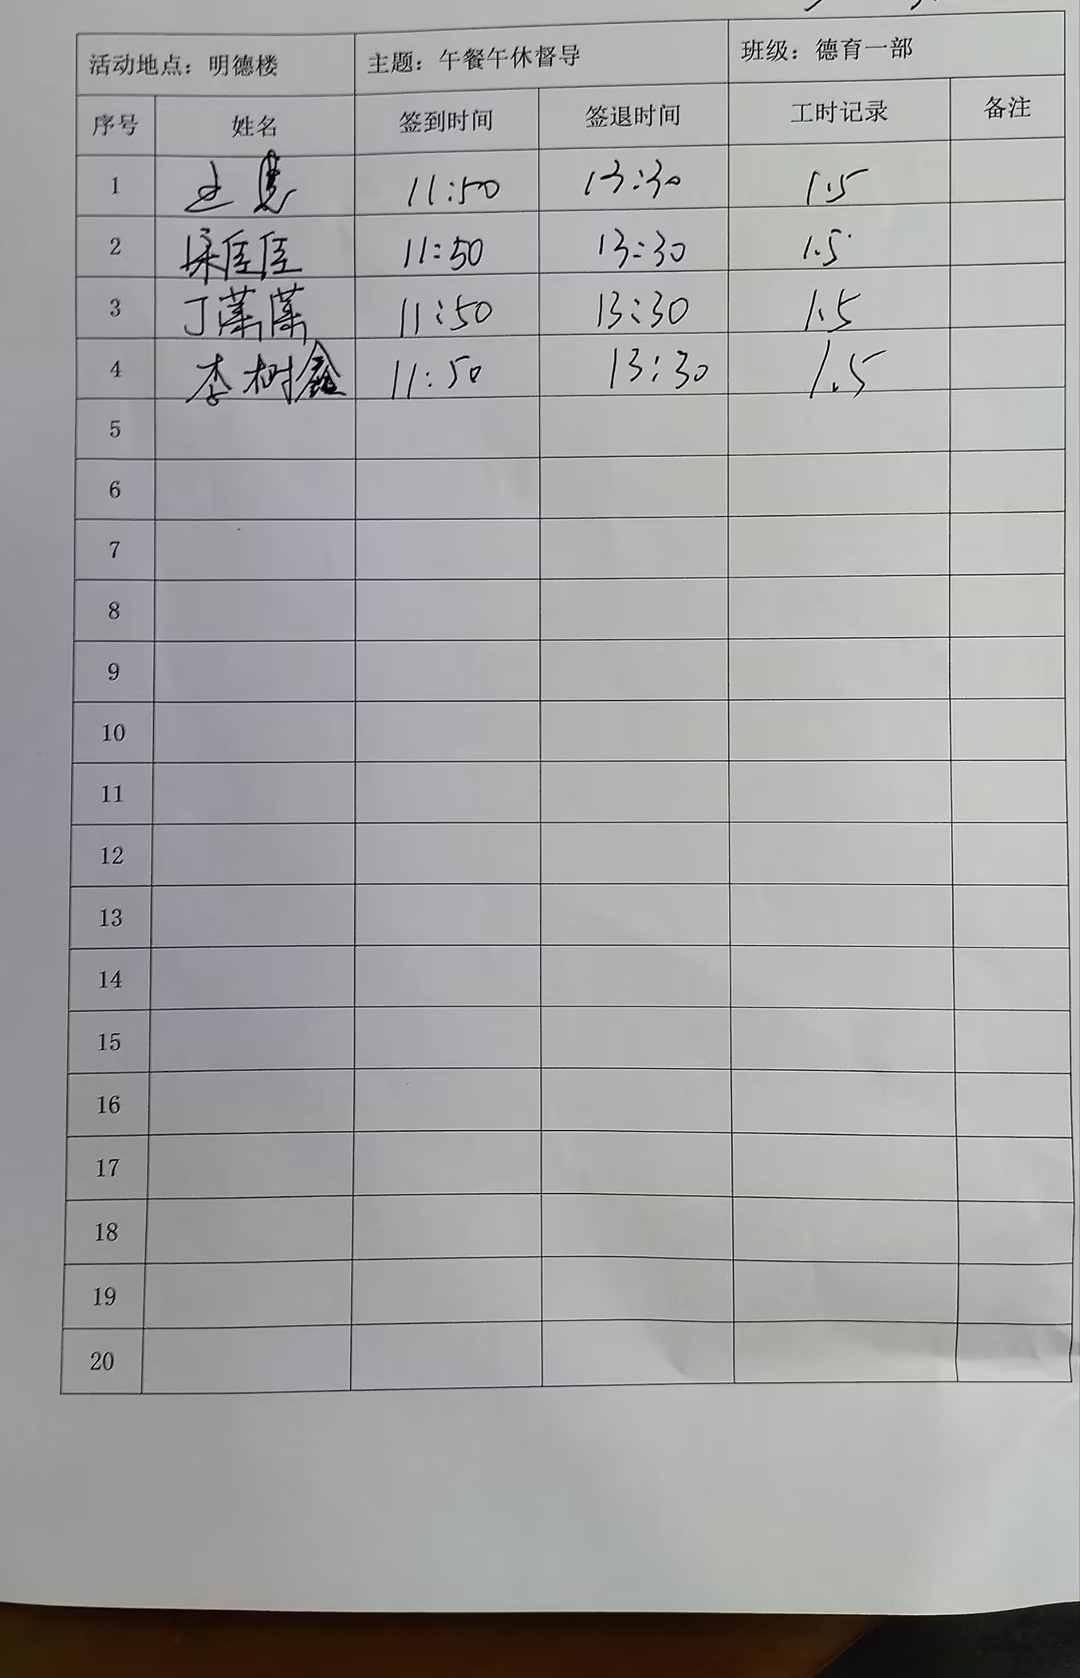 活动地点：明德楼 主题：午餐午休督导 班级：德育一部
序号 姓名 签到时间 签退时间 工时记录 备注
1 11:50 13:30 1.5
2 臣臣 11:50 13:30 1.5
3 丁 11:50 13:30 1.5
4 李树鑫 11:50 13:30 1.5
5
6
7
8
9
10
11
12
13
14
15
16
17
18
19
20